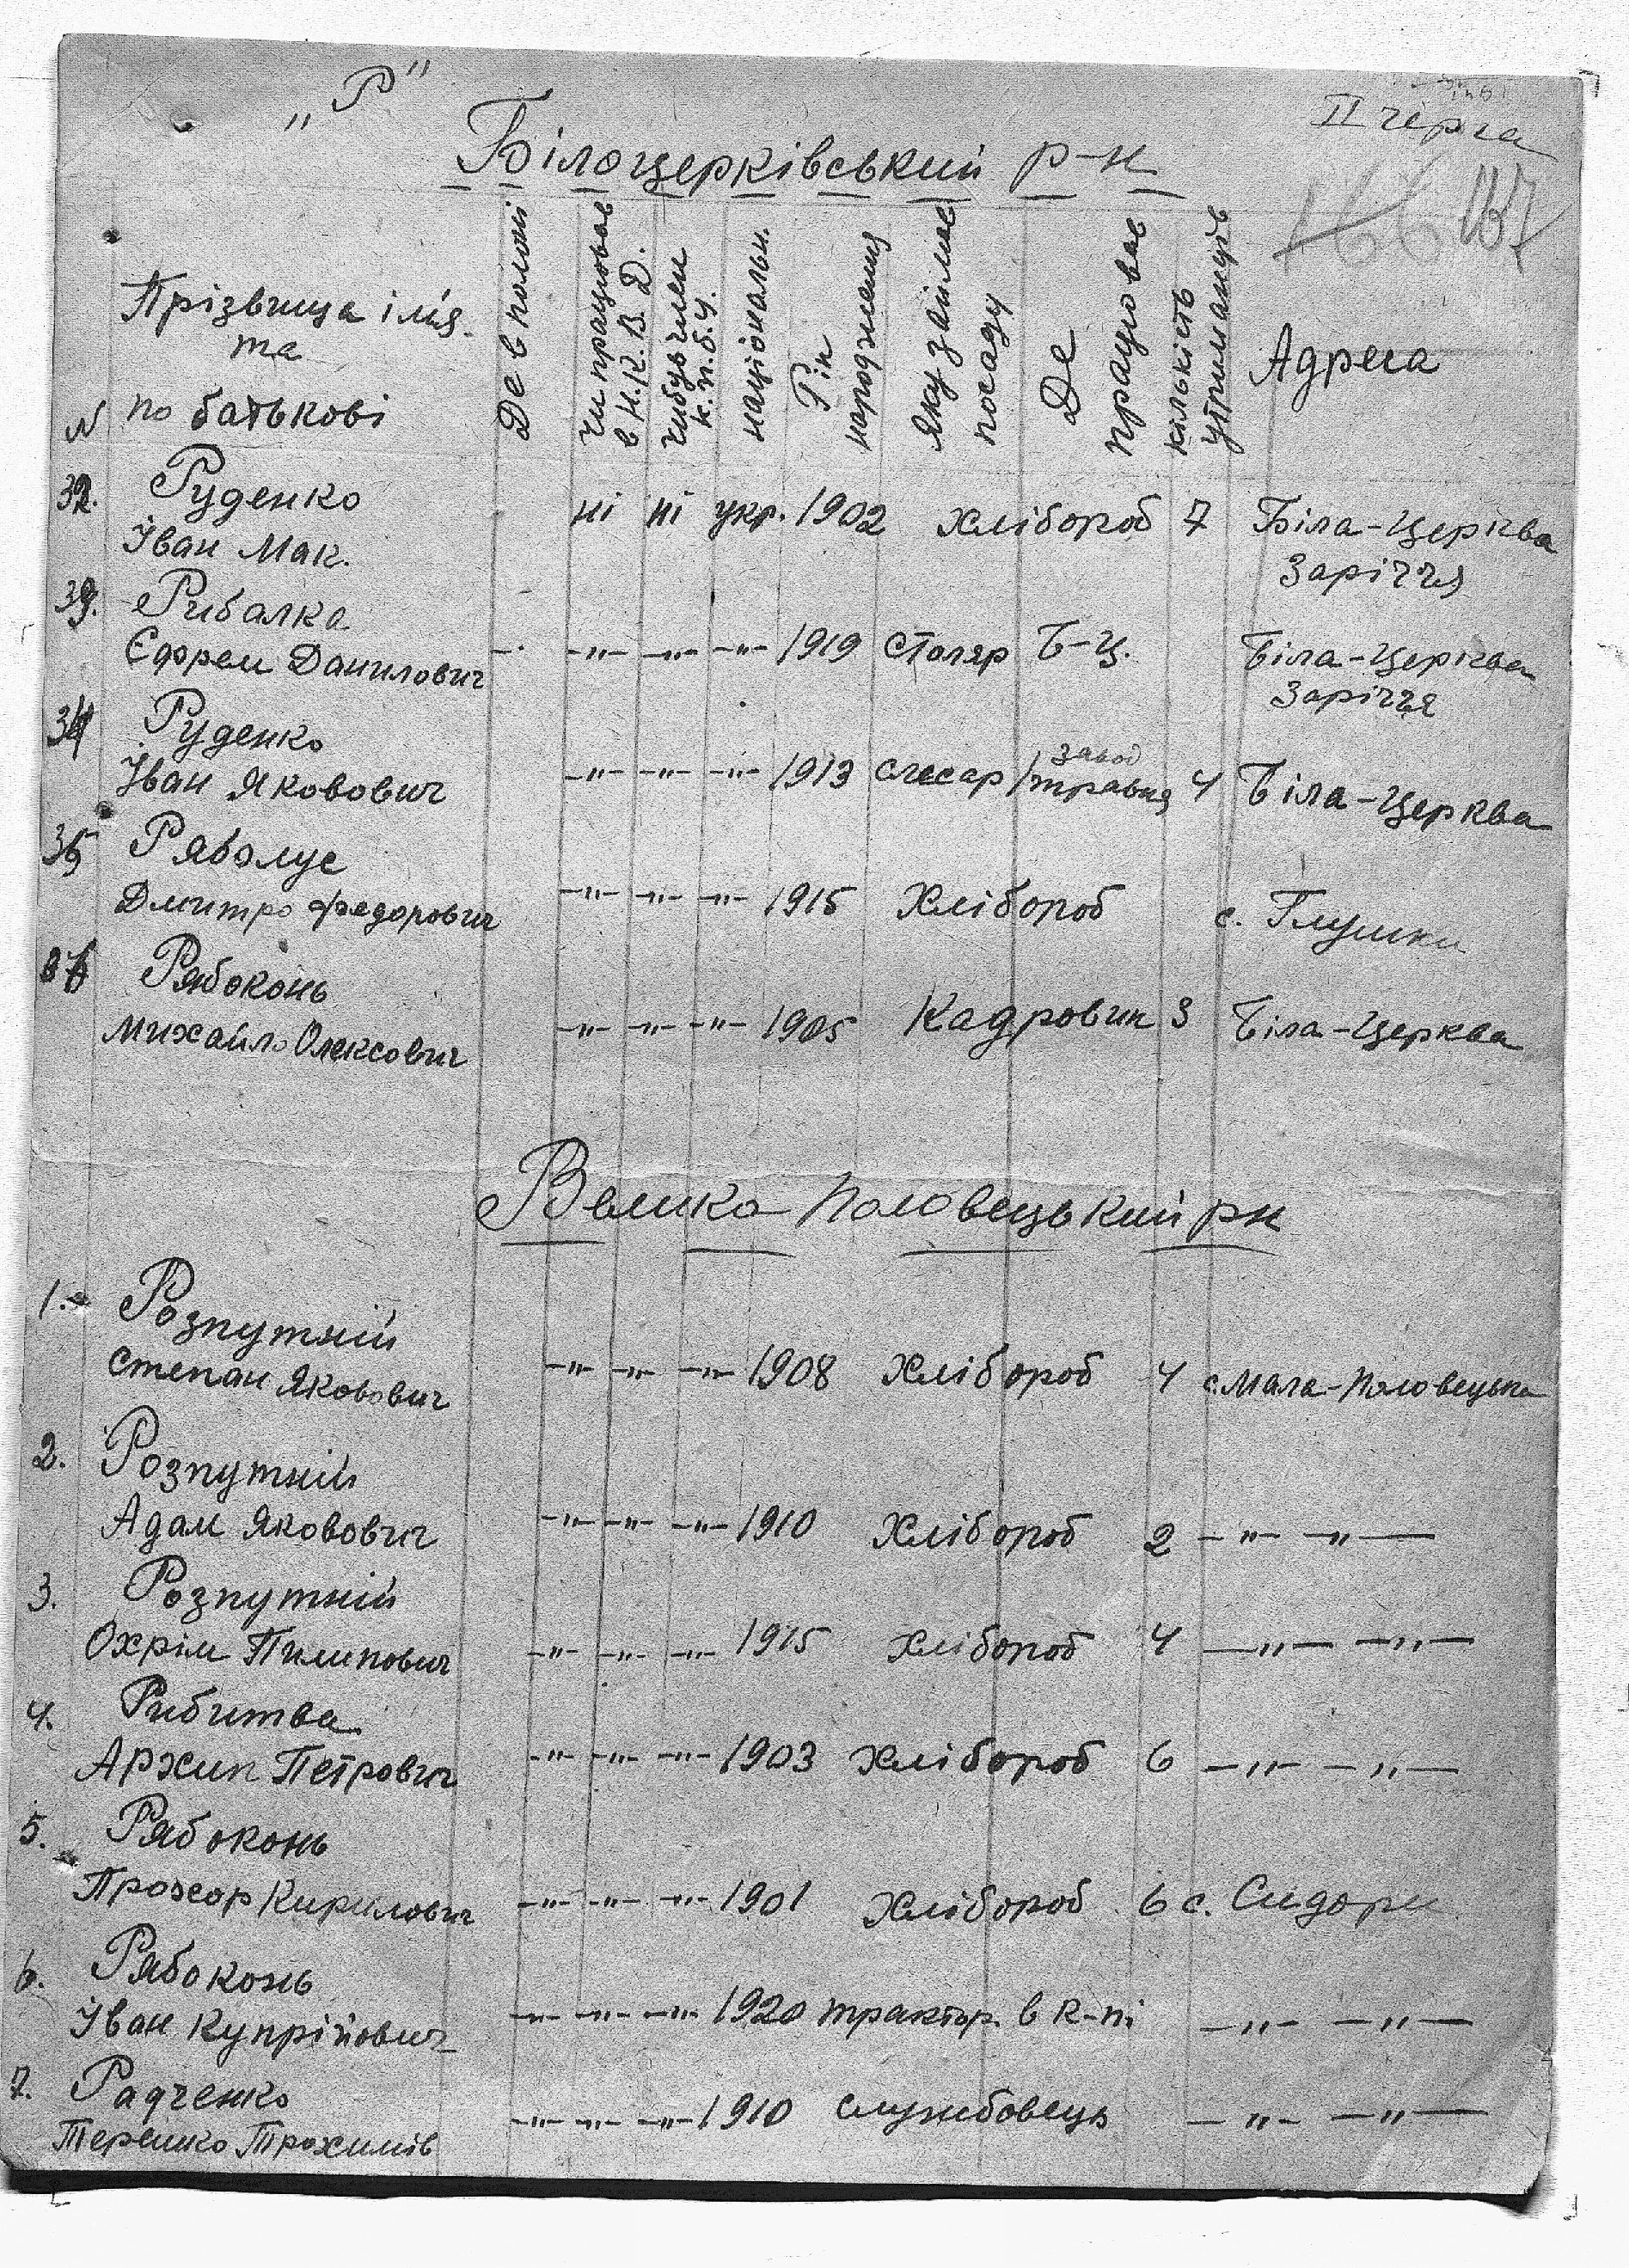 „Р"
II черга
Білоцерківський р-н
166 137
№ Прізвища ім'я та по батькові
Де в полоні
Чи працював в Н.К.В.Д.
Чи був член К.П.б.У.
національн.
Рік народження
Яку займає посаду
Де працював
кількість утриманців
Адреса
32. Руденко
Іван Мак. ні ні укр. 1902 хлібороб 7 Біла-Церква
Заріччя
33. Рибалка
Єфрем Данилович -·- -"- -"- -"- 1919 столяр Б-Ц. Біла-Церква
Заріччя
34 Руденко
Іван Якович -"- -"- -"- 1913 слесар завод 1 травня 4 Біла-Церква
35 Рябо
Дмитро Федорович -"- -"- -"- 1915 Хлібороб с. Глушки
36 Рябоконь
Михайло Олексович -"- -"- -"- 1905 Кадровик 3 Біла-Церква
Велико Половецький рн
1. Розпутній
Степан Якович -"- -"- -"- 1908 Хлібороб 4 с. Мала-Половецька
2. Розпутній
Адам Якович -"- -"- -"- 1910 Хлібороб 2 -"- -"-
3. Розпутній
Охрім Пилипович -"- -"- -"- 1915 Хлібороб 4 -"- -"-
4. Рибитва
Архип Петрович -"- -"- -"- 1903 Хлібороб 6 -"- -"-
5. Рябоконь
Прохор Кирилович -"- -"- -"- 1901 Хлібороб 6 с. Сидори
6. Рябоконь
Іван Купрійович -"- -"- -"- 1920 трактор. в к-пі -"- -"-
7. Радченко
Терешко Трохимів -"- -"- -"- 1910 службовець -"- -"-